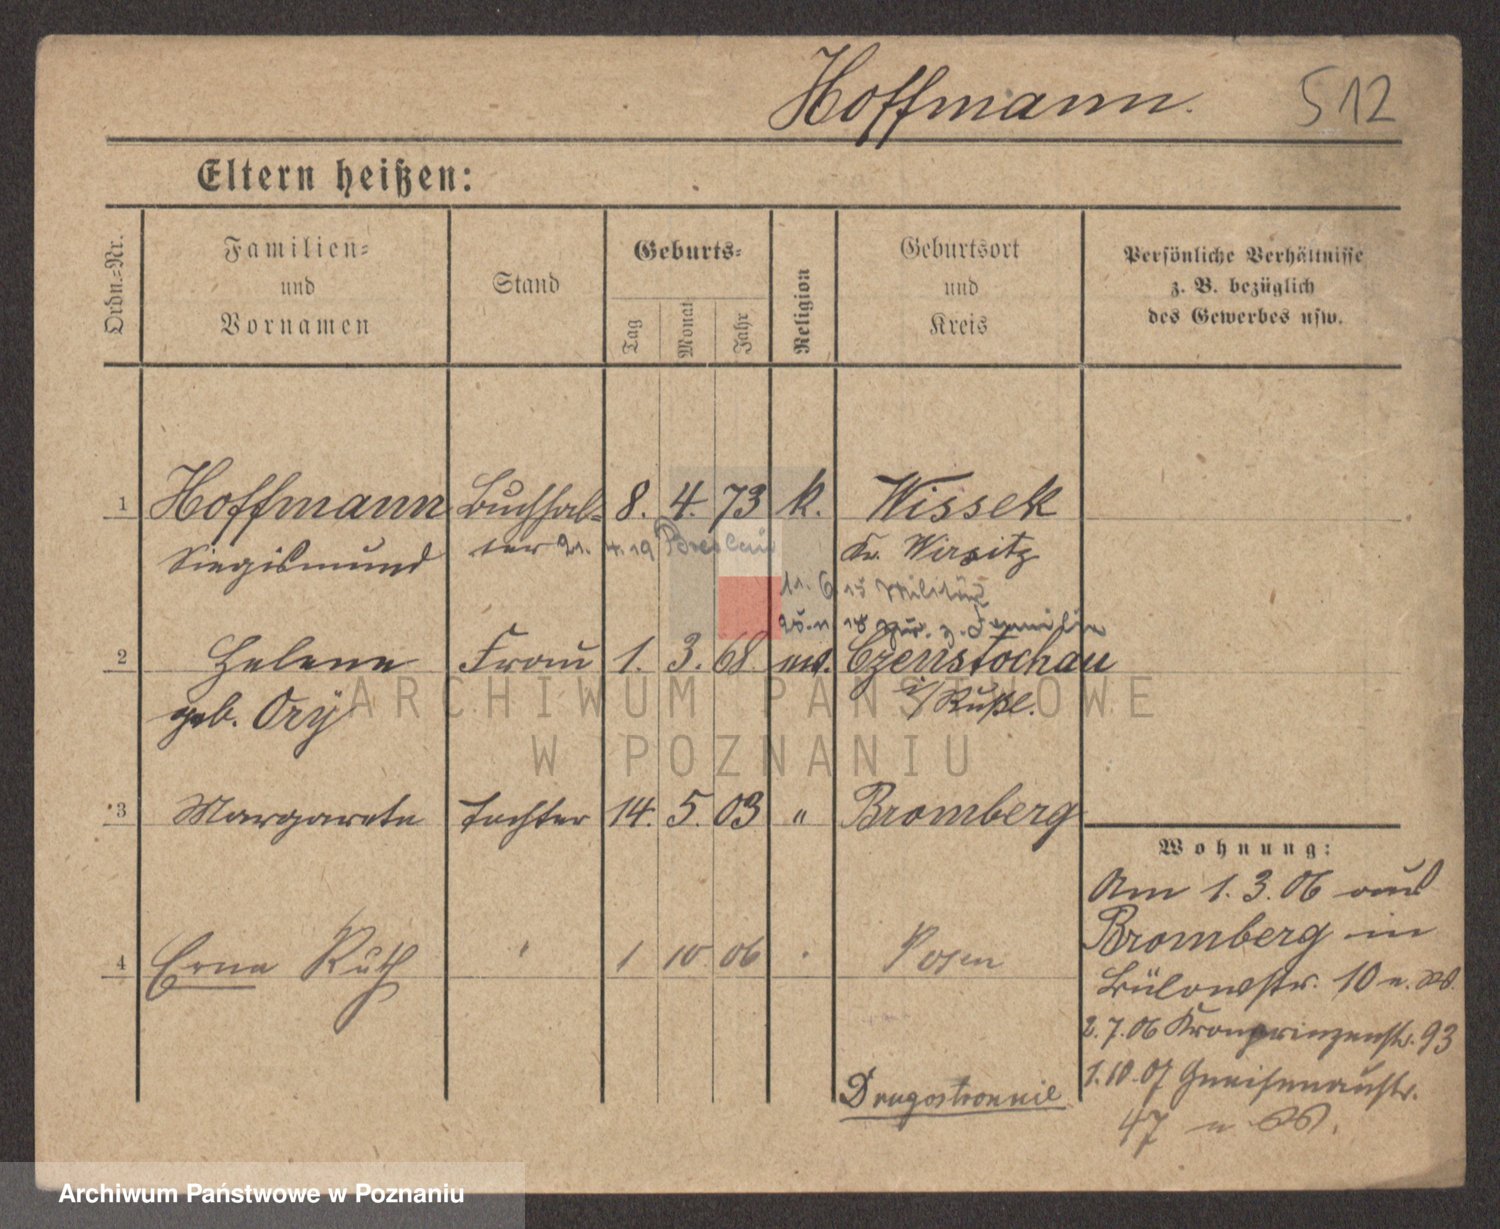 Hoffmann.
512
Eltern heißen:
Ordn.-Nr.
Familien-
und
Vornamen
Stand
Geburts-
Tag
Monat
Jahr
Religion
Geburtsort
und
Kreis
Persönliche Verhältnisse
z. B. bezüglich
des Gewerbes usw.
1 Hoffmann Buchhal- 8. 4. 73 k. Wissek
Siegismund ter 21. 4. 19 Breslau Kr. Wirsitz
11. 6 15 Militär
18 zur. z. Familie
2 Helene Frau 1. 3. 68. Czenstochau
geb. Ory i/Rußl.
ARCHIWUM PAŃSTWOWE
W POZNANIU
3 Margarete Tochter 14. 5. 03 " Bromberg
Wohnung:
Am 1. 3. 06 aus
Bromberg in
4 Erna Ruth " 1 10 06 Posen
Bülowstr. 10
2. 7. 06 Kronprinzenstr. 93
1. 10. 07 Gneisenaustr.
Drugostronnie
47
Archiwum Państwowe w Poznaniu